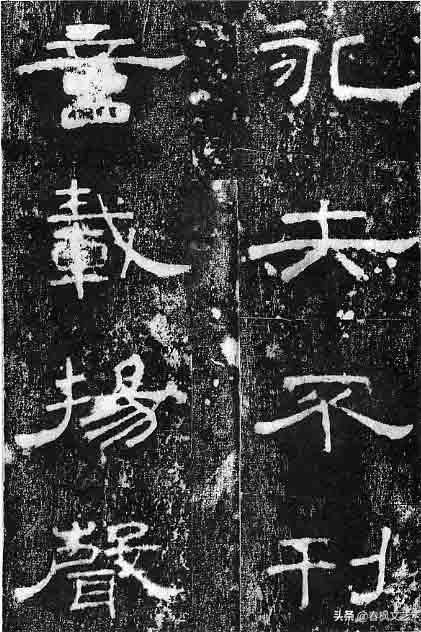 永矢不刊
載揚聲
头条 @春枫文艺